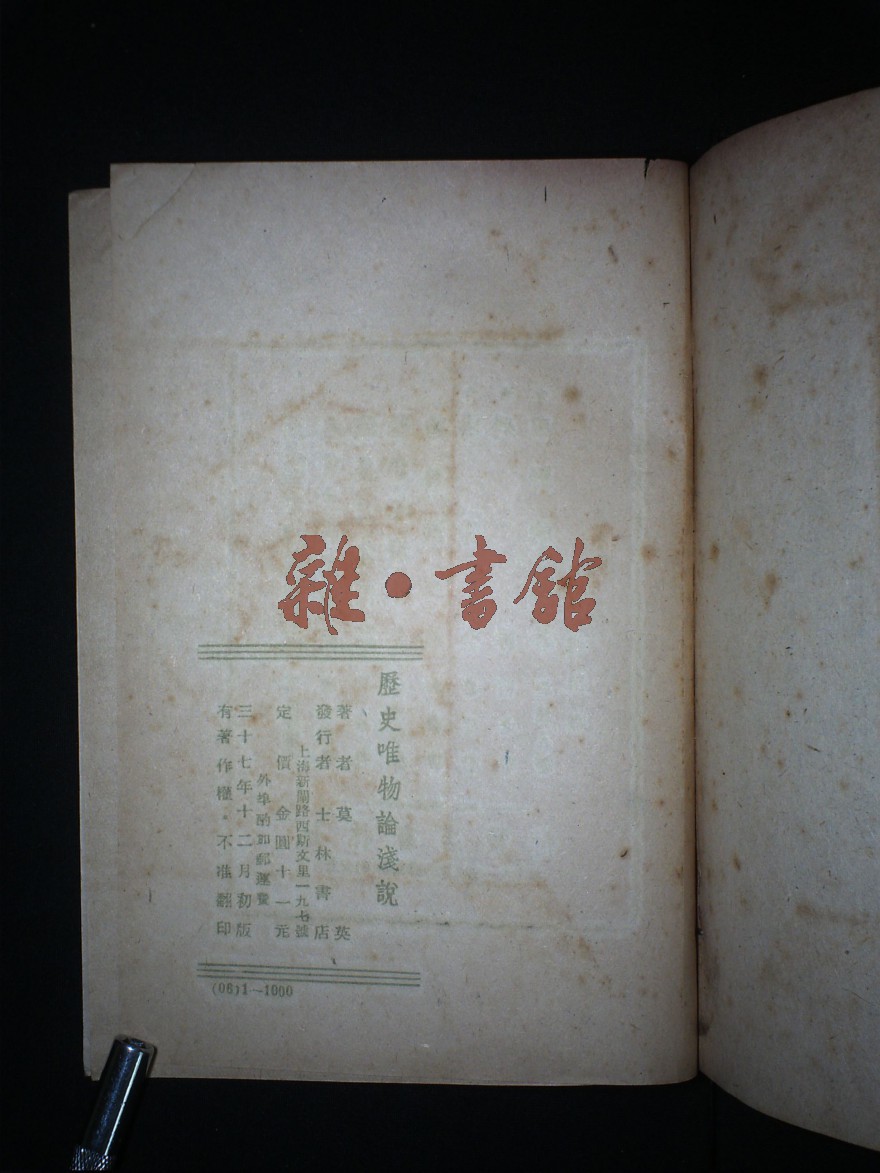 雜·書館
歷史唯物論淺說
著者 莫英
發行者 士林書店
上海新閘路西斯文里一九七號
定價 金圓十一元
外埠酌加郵運費
三十七年十二月初版
有著作權·不准翻印
(06)1—1000